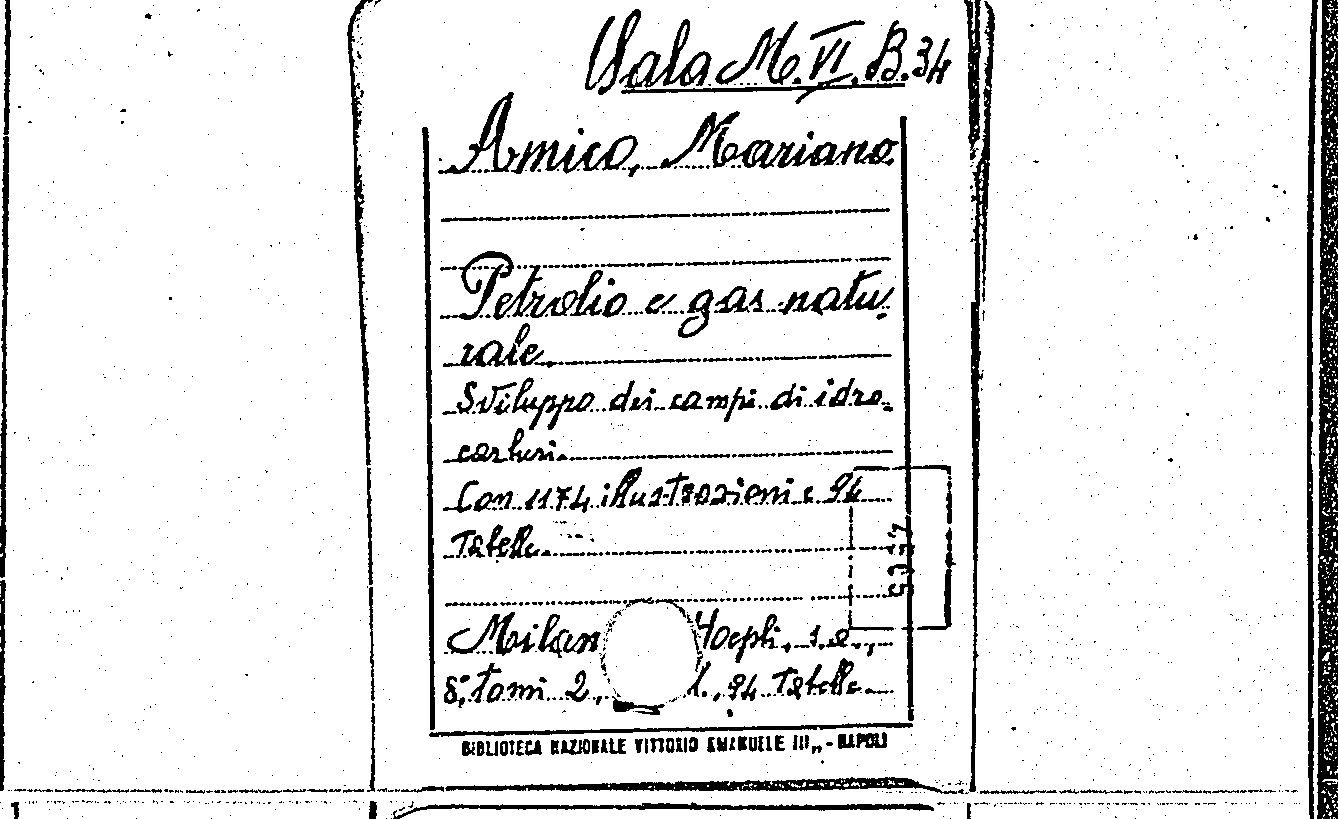 Sala M. VI. B. 34
Amico, Mariano
Petrolio e gas natu-
rale.
Sviluppo dei campi di idro-
carburi.
Con 1174 illustrazioni e 94
Tabelle.
Milan Hoepli, s.a.,
8°, tomi 2, l., 94 Tabelle.
BIBLIOTECA NAZIONALE VITTORIO EMANUELE III„ - NAPOLI